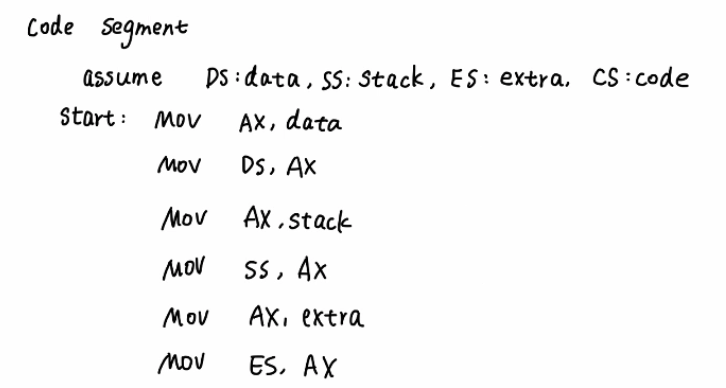 Code Segment
assume DS:data, SS: Stack, ES: extra. CS:code
Start: Mov AX, data
Mov DS, AX
Mov AX, stack
Mov SS, AX
Mov AX, extra
Mov ES, AX